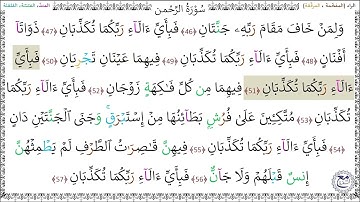 سُورَةُ الرَّحْمٰن
وَلِمَنْ خَافَ مَقَامَ رَبِّهِۦ جَنَّتَانِ (46) فَبِأَيِّ ءَالَآءِ رَبِّكُمَا تُكَذِّبَانِ (47) ذَوَاتَآ
أَفْنَانٍ (48) فَبِأَيِّ ءَالَآءِ رَبِّكُمَا تُكَذِّبَانِ (49) فِيهِمَا عَيْنَانِ تَجْرِيَانِ (50) فَبِأَيِّ
ءَالَآءِ رَبِّكُمَا تُكَذِّبَانِ (51) فِيهِمَا مِن كُلِّ فَـٰكِهَةٍ زَوْجَانِ (52) فَبِأَيِّ ءَالَآءِ رَبِّكُمَا
تُكَذِّبَانِ (53) مُتَّكِـِٔينَ عَلَىٰ فُرُشٍۭ بَطَآئِنُهَا مِنْ إِسْتَبْرَقٍ ۚ وَجَنَى الْجَنَّتَيْنِ دَانٍ
(54) فَبِأَيِّ ءَالَآءِ رَبِّكُمَا تُكَذِّبَانِ (55) فِيهِنَّ قَـٰصِرَٰتُ الطَّرْفِ لَمْ يَطْمِثْهُنَّ
إِنسٌ قَبْلَهُمْ وَلَا جَآنٌّ (56) فَبِأَيِّ ءَالَآءِ رَبِّكُمَا تُكَذِّبَانِ (57)